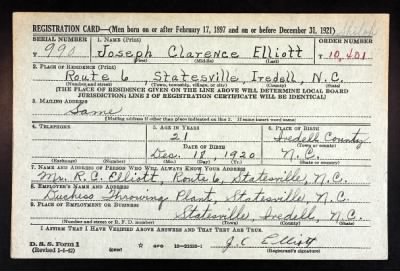 REGISTRATION CARD—(Men born on or after February 17, 1897 and on or before December 31, 1921)
SERIAL NUMBER
1. NAME (Print)
ORDER NUMBER
T 990
Joseph Clarence Elliott
T 10,401
(First) (Middle) (Last)
2. PLACE OF RESIDENCE (Print)
Route 6 Statesville, Iredell, N.C.
(Number and street) (Town, township, village, or city) (County) (State)
[THE PLACE OF RESIDENCE GIVEN ON THE LINE ABOVE WILL DETERMINE LOCAL BOARD
JURISDICTION; LINE 2 OF REGISTRATION CERTIFICATE WILL BE IDENTICAL]
3. MAILING ADDRESS
Same
[Mailing address if other than place indicated on line 2. If same insert word same]
4. TELEPHONE
5. AGE IN YEARS
6. PLACE OF BIRTH
21
Iredell County
DATE OF BIRTH
(Town or county)
Dec. 17, 1920
N.C.
(Exchange) (Number) (Mo.) (Day) (Yr.) (State or country)
7. NAME AND ADDRESS OF PERSON WHO WILL ALWAYS KNOW YOUR ADDRESS
Mr. R.C. Elliott, Route 6, Statesville, N.C.
8. EMPLOYER'S NAME AND ADDRESS
Duchess Throwing Plant, Statesville, N.C.
9. PLACE OF EMPLOYMENT OR BUSINESS
Statesville, Iredell, N.C.
(Number and street or R. F. D. number) (Town) (County) (State)
I AFFIRM THAT I HAVE VERIFIED ABOVE ANSWERS AND THAT THEY ARE TRUE.
D. S. S. Form 1
J.C. Elliott
(Revised 1-4-42) (over)
(Registrant's signature)